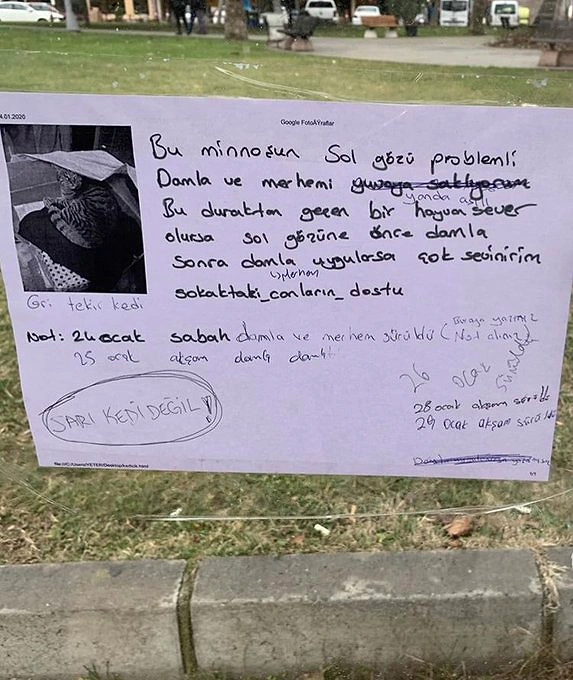 4.01.2020
Google FotoÄŸraflar
Bu minnoşun Sol gözü problemli
Damla ve merhemi yuvaya saklıyorum
yanda asılı
Bu duraktan geçen bir hayvan sever
olursa sol gözüne önce damla
sonra damla uygularsa çok sevinirim
merhem
sokaktaki_canların_dostu
Gri tekir kedi
Not: 24 ocak sabah damla ve merhem sürüldü (Buraya yazınız
Not alınız)
25 ocak akşam damla
26 ocak sürüldü
SARI KEDİ DEĞİL!
28 ocak akşam sürüldü
29 ocak akşam sürüldü
file:///C:/Users/YETER/Desktop/kedicik.html
1/1